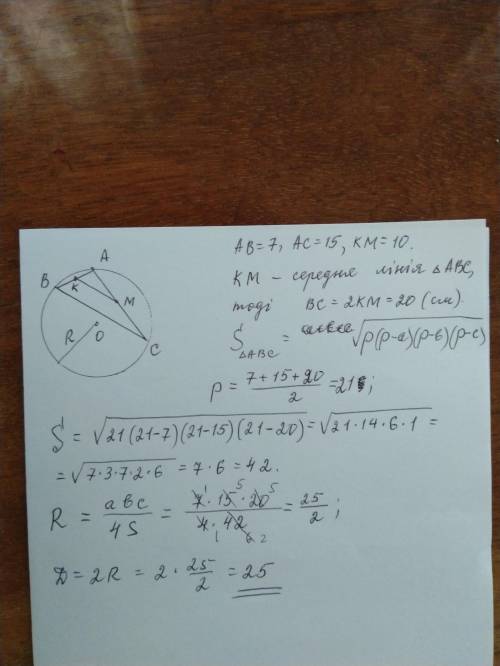 A
B
K
M
R
O
C
AB=7, AC=15, KM=10.
KM - середня лінія △ABC,
тоді BC = 2KM = 20 (см).
S△ABC = √p(p-a)(p-b)(p-c)
p = 7+15+20/2 = 21;
S = √21(21-7)(21-15)(21-20) = √21·14·6·1 =
= √7·3·7·2·6 = 7·6 = 42.
R = abc/4S = 7·15·20/4·42 = 25/2;
D = 2R = 2·25/2 = 25